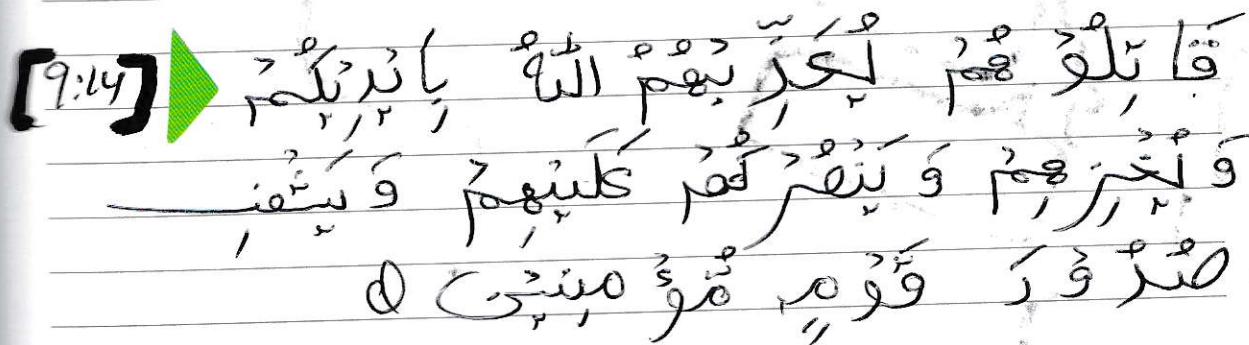 [9:14] قَاتِلُوْ هُمْ يُعَذِّبْهُمُ اللّٰهُ بِاَيْدِيْكُمْ
وَ يُخْزِهِمْ وَ يَنْصُرْكُمْ عَلَيْهِمْ وَ يَشْفِ
صُدُوْرَ قَوْمٍ مُّؤْمِنِيْنَ